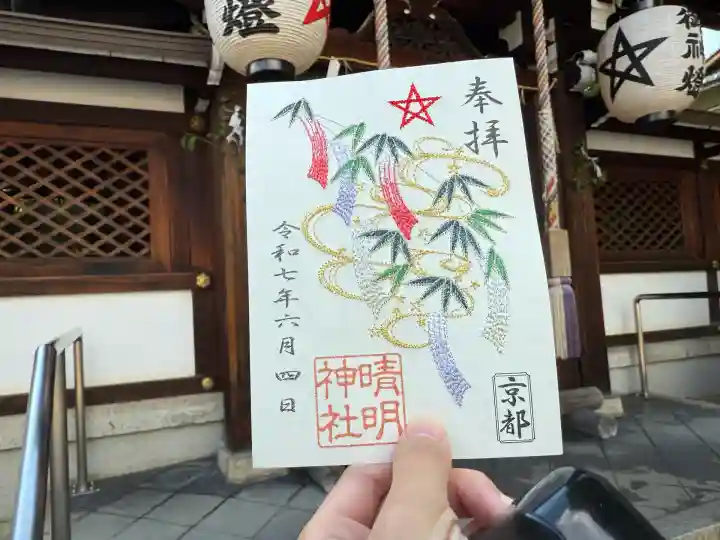 奉拝
令和七年六月四日
晴明
神社
京都
燈